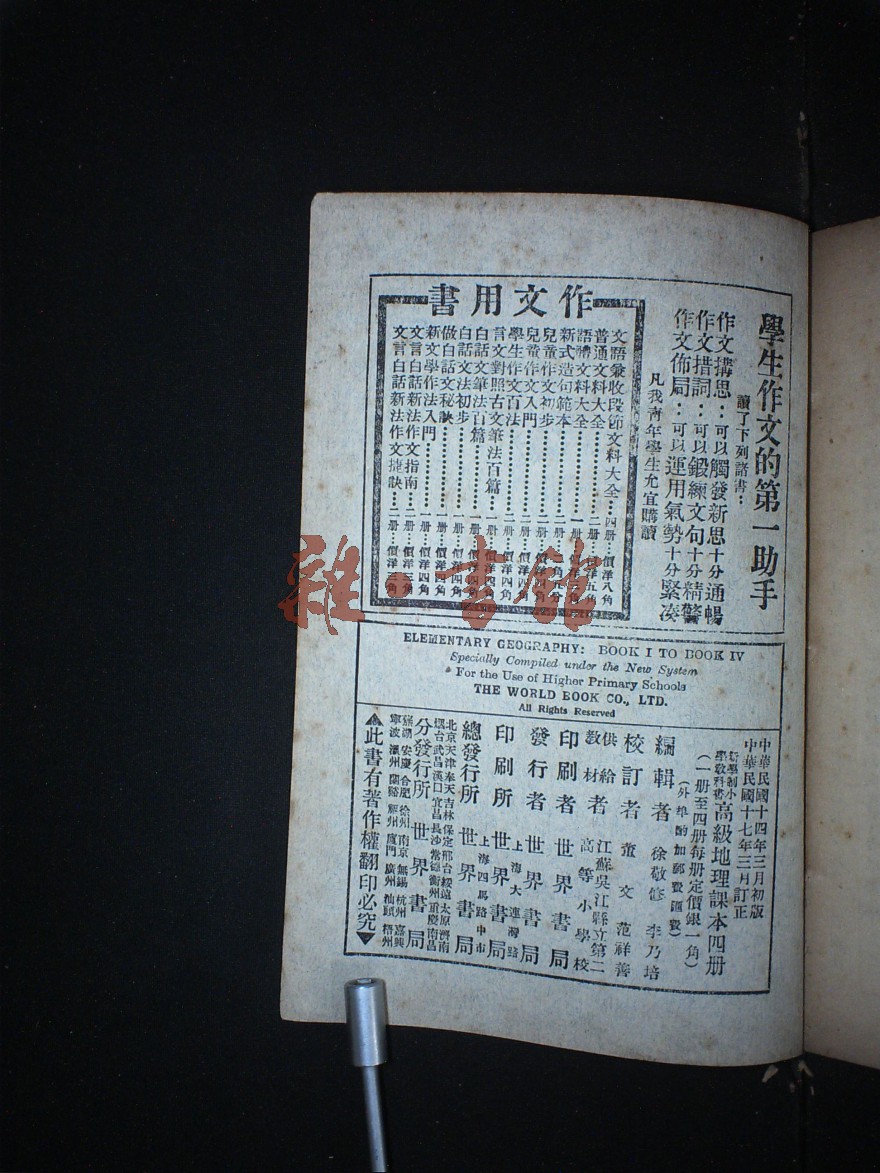 學生作文的第一助手
讀了下列諸書：
作文搆思：可以觸發新思十分通暢
作文措詞：可以鍛練文句十分精警
作文佈局：可以運用氣勢十分緊湊
凡我靑年學生允宜購讀
作文用書
文語彙收段節文料大全：四册：價洋八角
普通文料大全
語體文料大全
新式造句範本
兒童作文初步
兒童作文入門
學生作文百法
言文對照古文筆法百篇
白話文筆法百篇
白話文法初步
做白話文秘訣
新文學作法入門
文言白話新法作文指南：二册：價洋三角
文言白話新法作文捷訣：二册：價洋三角
ELEMENTARY GEOGRAPHY: BOOK I TO BOOK IV
Specially Compiled under the New System
For the Use of Higher Primary Schools
THE WORLD BOOK CO., LTD.
All Rights Reserved
中華民國十四年三月初版
中華民國十七年三月訂正
新學制小學教科書 高級地理課本四册
（一册至四册每册定價銀一角）
（外埠酌加郵費匯費）
編輯者 徐敬修 李乃培
校訂者 董文 范祥善
供給教材者 江蘇吳江縣立第二高等小學校
印刷者 世界書局
發行者 世界書局
印刷所 上海大連灣路 世界書局
總發行所 上海四馬路中市 世界書局
北京天津奉天吉林保定邢台綏遠太原濟南
烟台武昌漢口宜昌長沙常德衡州重慶南昌
分發行所 世界書局
蕪湖 安慶 合肥 徐州 南京 無錫 杭州 嘉興
寧波 溫州 蘭谿 福州 廈門 廣州 汕頭 梧州
▲此書有著作權翻印必究▼
雜·書館